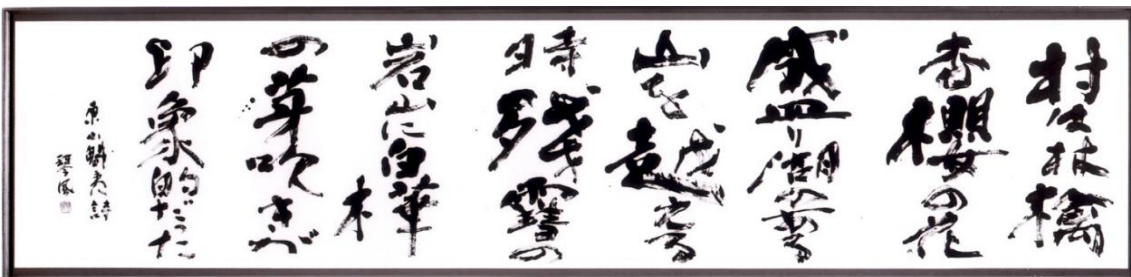 村は林檎
杏櫻の花
盛り湖の
山を越える
時残雪の
岩山に白樺
の芽吹きが
印象的だった
東山魁夷詩